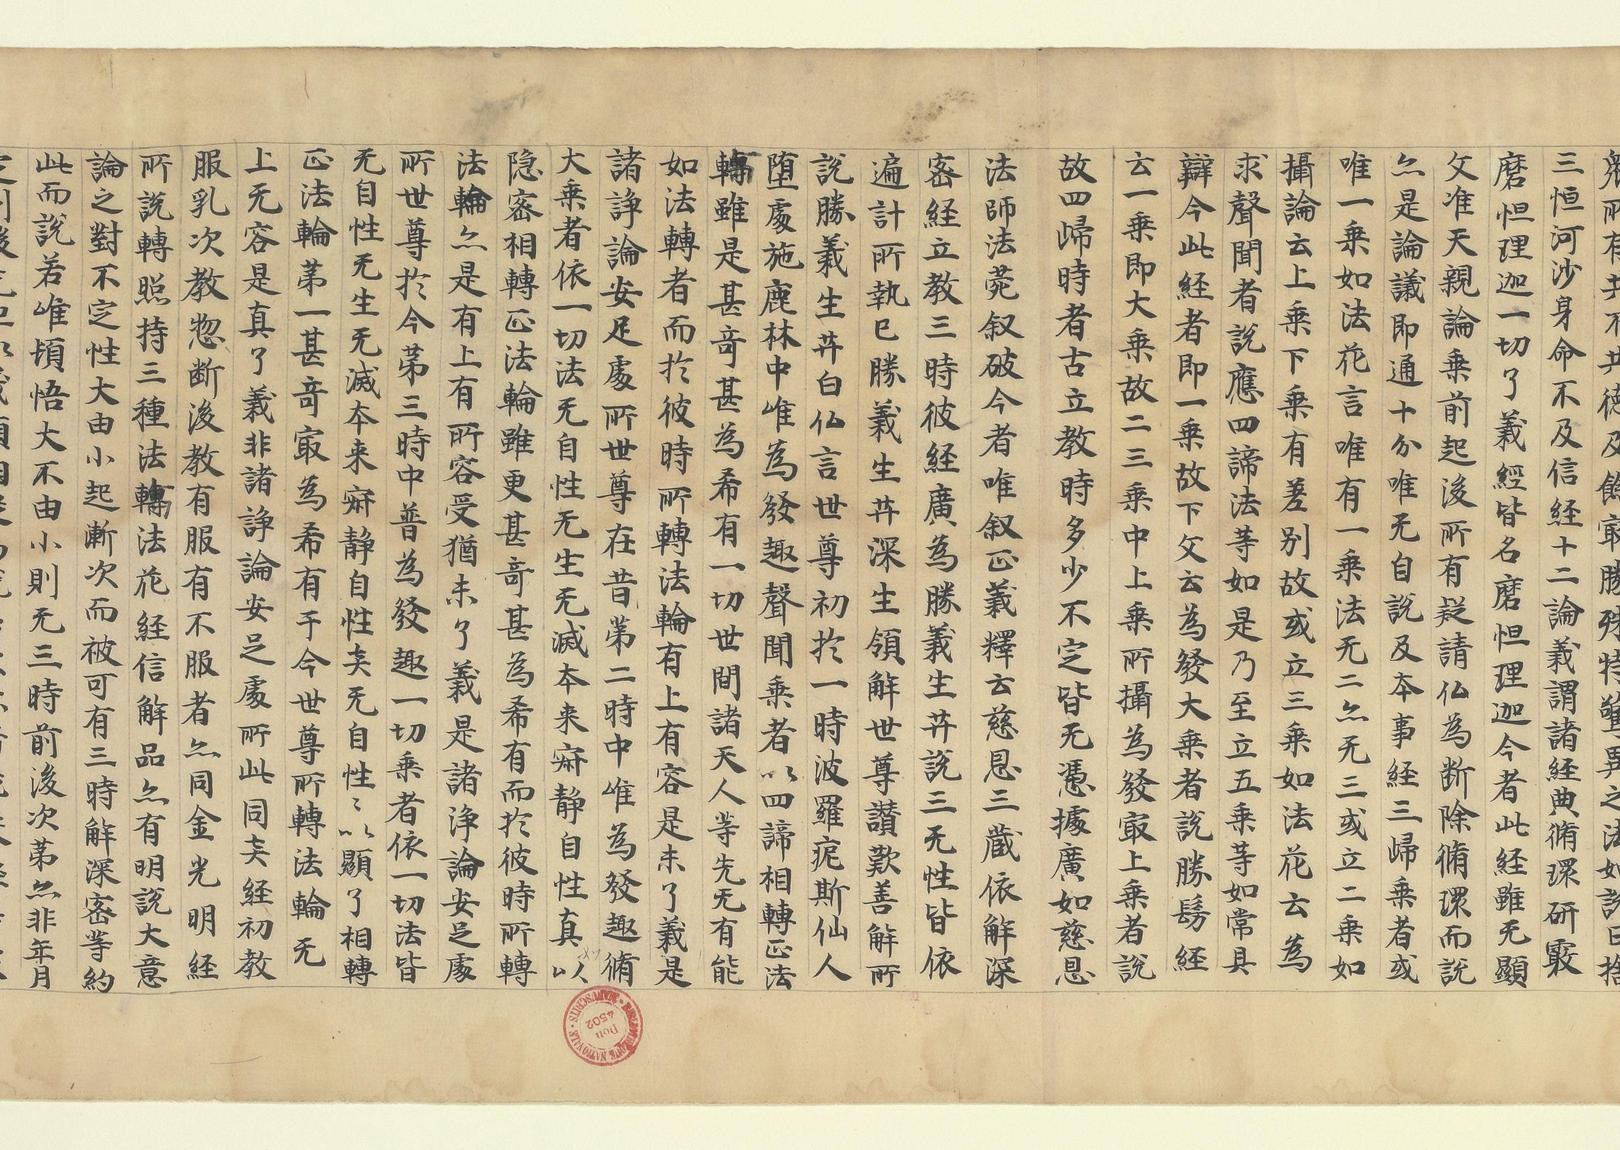 所有共不共德及餘最勝殊特驚異之法如說日捨
三恒河沙身命不及信經十二論義謂諸經典循環研覈
磨怛理迦一切了義經皆名磨怛理迦今者此經雖无顯
文准天親論乗前起後所有疑請仏為断除循環而說
亦是論議即通十分唯无自說及夲事経三歸乗者或
唯一乗如法花言唯有一乗法无二亦无三或立二乗如
攝論云上乗下乗有差别故或立三乗如法花云為
求聲聞者說應四諦法等如是乃至立五乗等如常具
辯今此経者即一乗故下文云為發大乗者說勝鬘経
云一乗即大乗故二三乗中上乗所攝為發冣上乗者說
故四歸時者古立教時多少不定皆无憑據廣如慈恩
法師法菀叙破今者唯叙正義釋云慈恩三蔵依解深
密経立教三時彼経廣為勝義生䒑說三无性皆依
遍計所執已勝義生䒑深生領解世尊讃歎善解所
說勝義生䒑白仏言世尊初於一時波羅痆斯仙人
堕處施鹿林中唯為發趣聲聞乗者以四諦相轉正法
轉雖是甚竒甚為希有一切世間諸天人等先无有能
如法轉者而於彼時所轉法輪有上有容是未了義是
諸諍論安足處所世尊在昔第二時中唯為發趣循
大乗者依一切法无自性无生无滅夲来寂静自性真以
隐密相轉正法輪雖更甚竒甚為希有而於彼時所轉
法輪亦是有上有所容受猶未了義是諸諍論安足處
所世尊於今第三時中普為發趣一切乗者依一切法皆
无自性无生无滅夲来寂静自性㚑无自性〻以顯了相轉
正法輪第一甚竒冣為希有于今世尊所轉法輪无
上无容是真了義非諸諍論安足處所此同㚑経初教
服乳次教惣断後教有服有不服者亦同金光明経
所說轉照持三種法轉法花経信解品亦有明說大意
論之對不定性大由小起漸次而被可有三時解深密等約
此而說若唯頓悟大不由小則无三時前後次第亦非年月